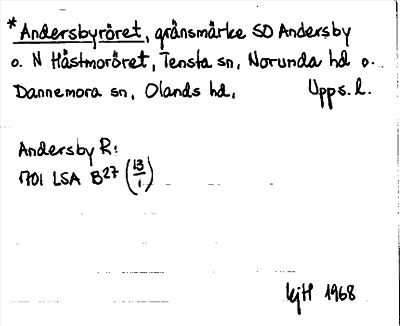 *Andersbyröret, gränsmärke SO Andersby
o. N Hästmoröret, Tensta sn, Norunda hd o.
Dannemora sn, Olands hd, Upps. l.
Andersby R:
1701 LSA B27 (13/1)
kjH 1968